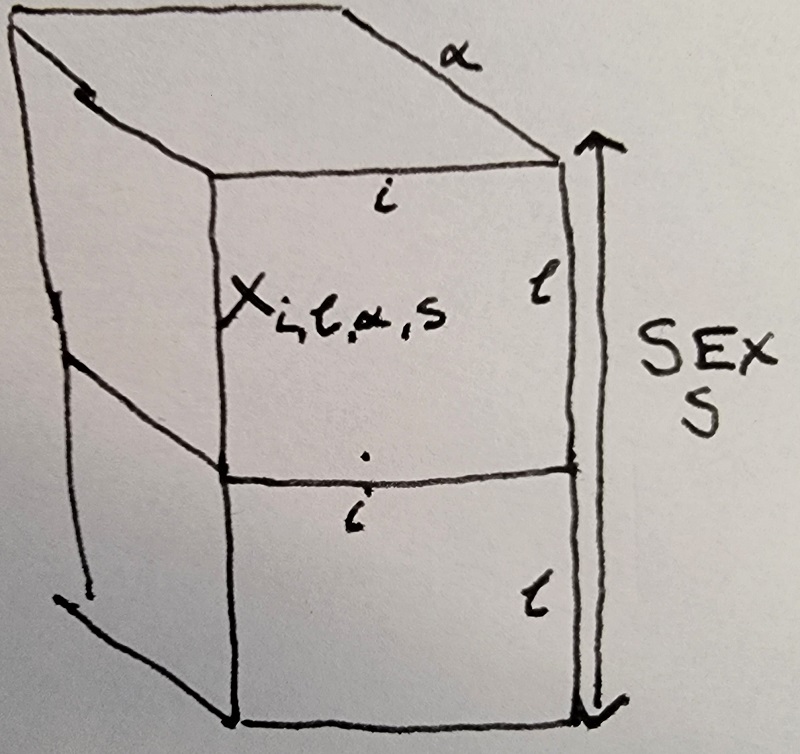 α
i
X i,l,α,s
l
SEX
S
i
l